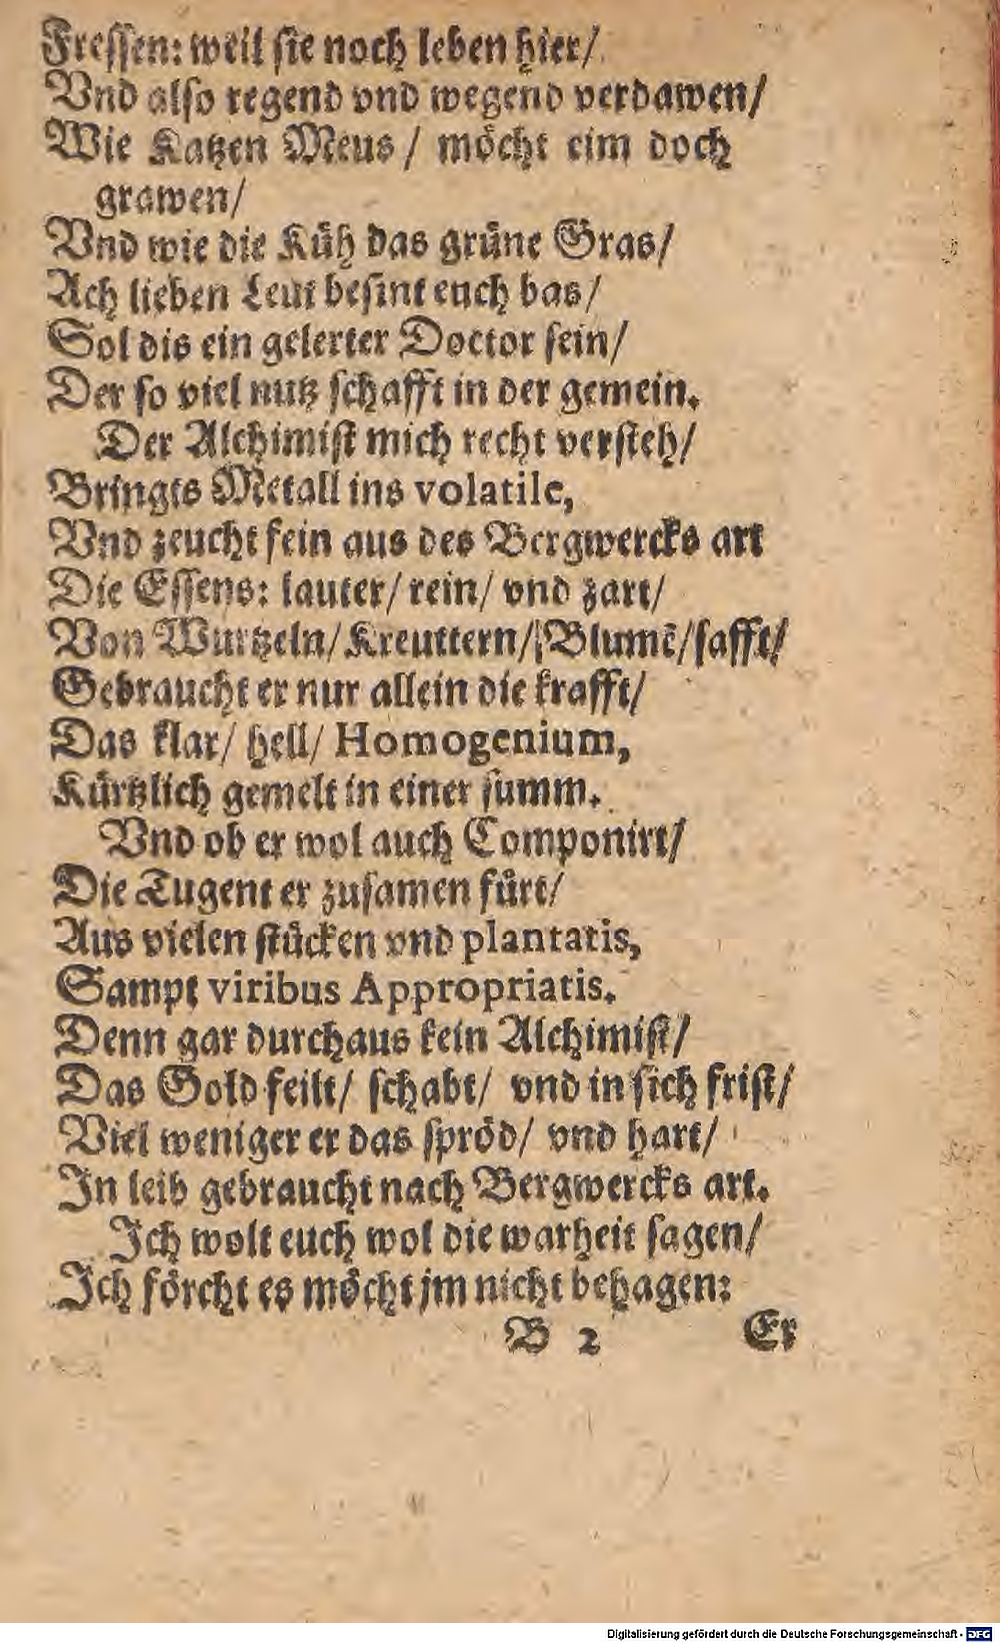 Fressen: weil sie noch leben hier/
Vnd also regend vnd wegend verdawen/
Wie Katzen Meus / möcht eim doch
grawen/
Vnd wie die Küh das grüne Gras/
Ach lieben Leut besint euch bas/
Sol dis ein gelerter Doctor sein/
Der so viel nutz schafft in der gemein.
Der Alchimist mich recht versteh/
Bringts Metall ins volatile,
Vnd zeucht fein aus des Bergwercks art
Die Essens: lauter/ rein/ vnd zart/
Von Wurtzeln/ Kreuttern/ Blumē/ safft/
Gebraucht er nur allein die krafft/
Das klar/ hell/ Homogenium,
Kürtzlich gemelt in einer summ.
Vnd ob er wol auch Componirt/
Die Tugent er zusamen fürt/
Aus vielen stücken vnd plantatis,
Sampt viribus Appropriatis.
Denn gar durchaus kein Alchimist/
Das Gold feilt/ schabt/ vnd in sich frist/
Viel weniger er das spröd/ vnd hart/
In leib gebraucht nach Bergwercks art.
Ich wolt euch wol die warheit sagen/
Ich förcht es möcht jm nicht behagen:
B 2 Er
Digitalisierung gefördert durch die Deutsche Forschungsgemeinschaft - DFG